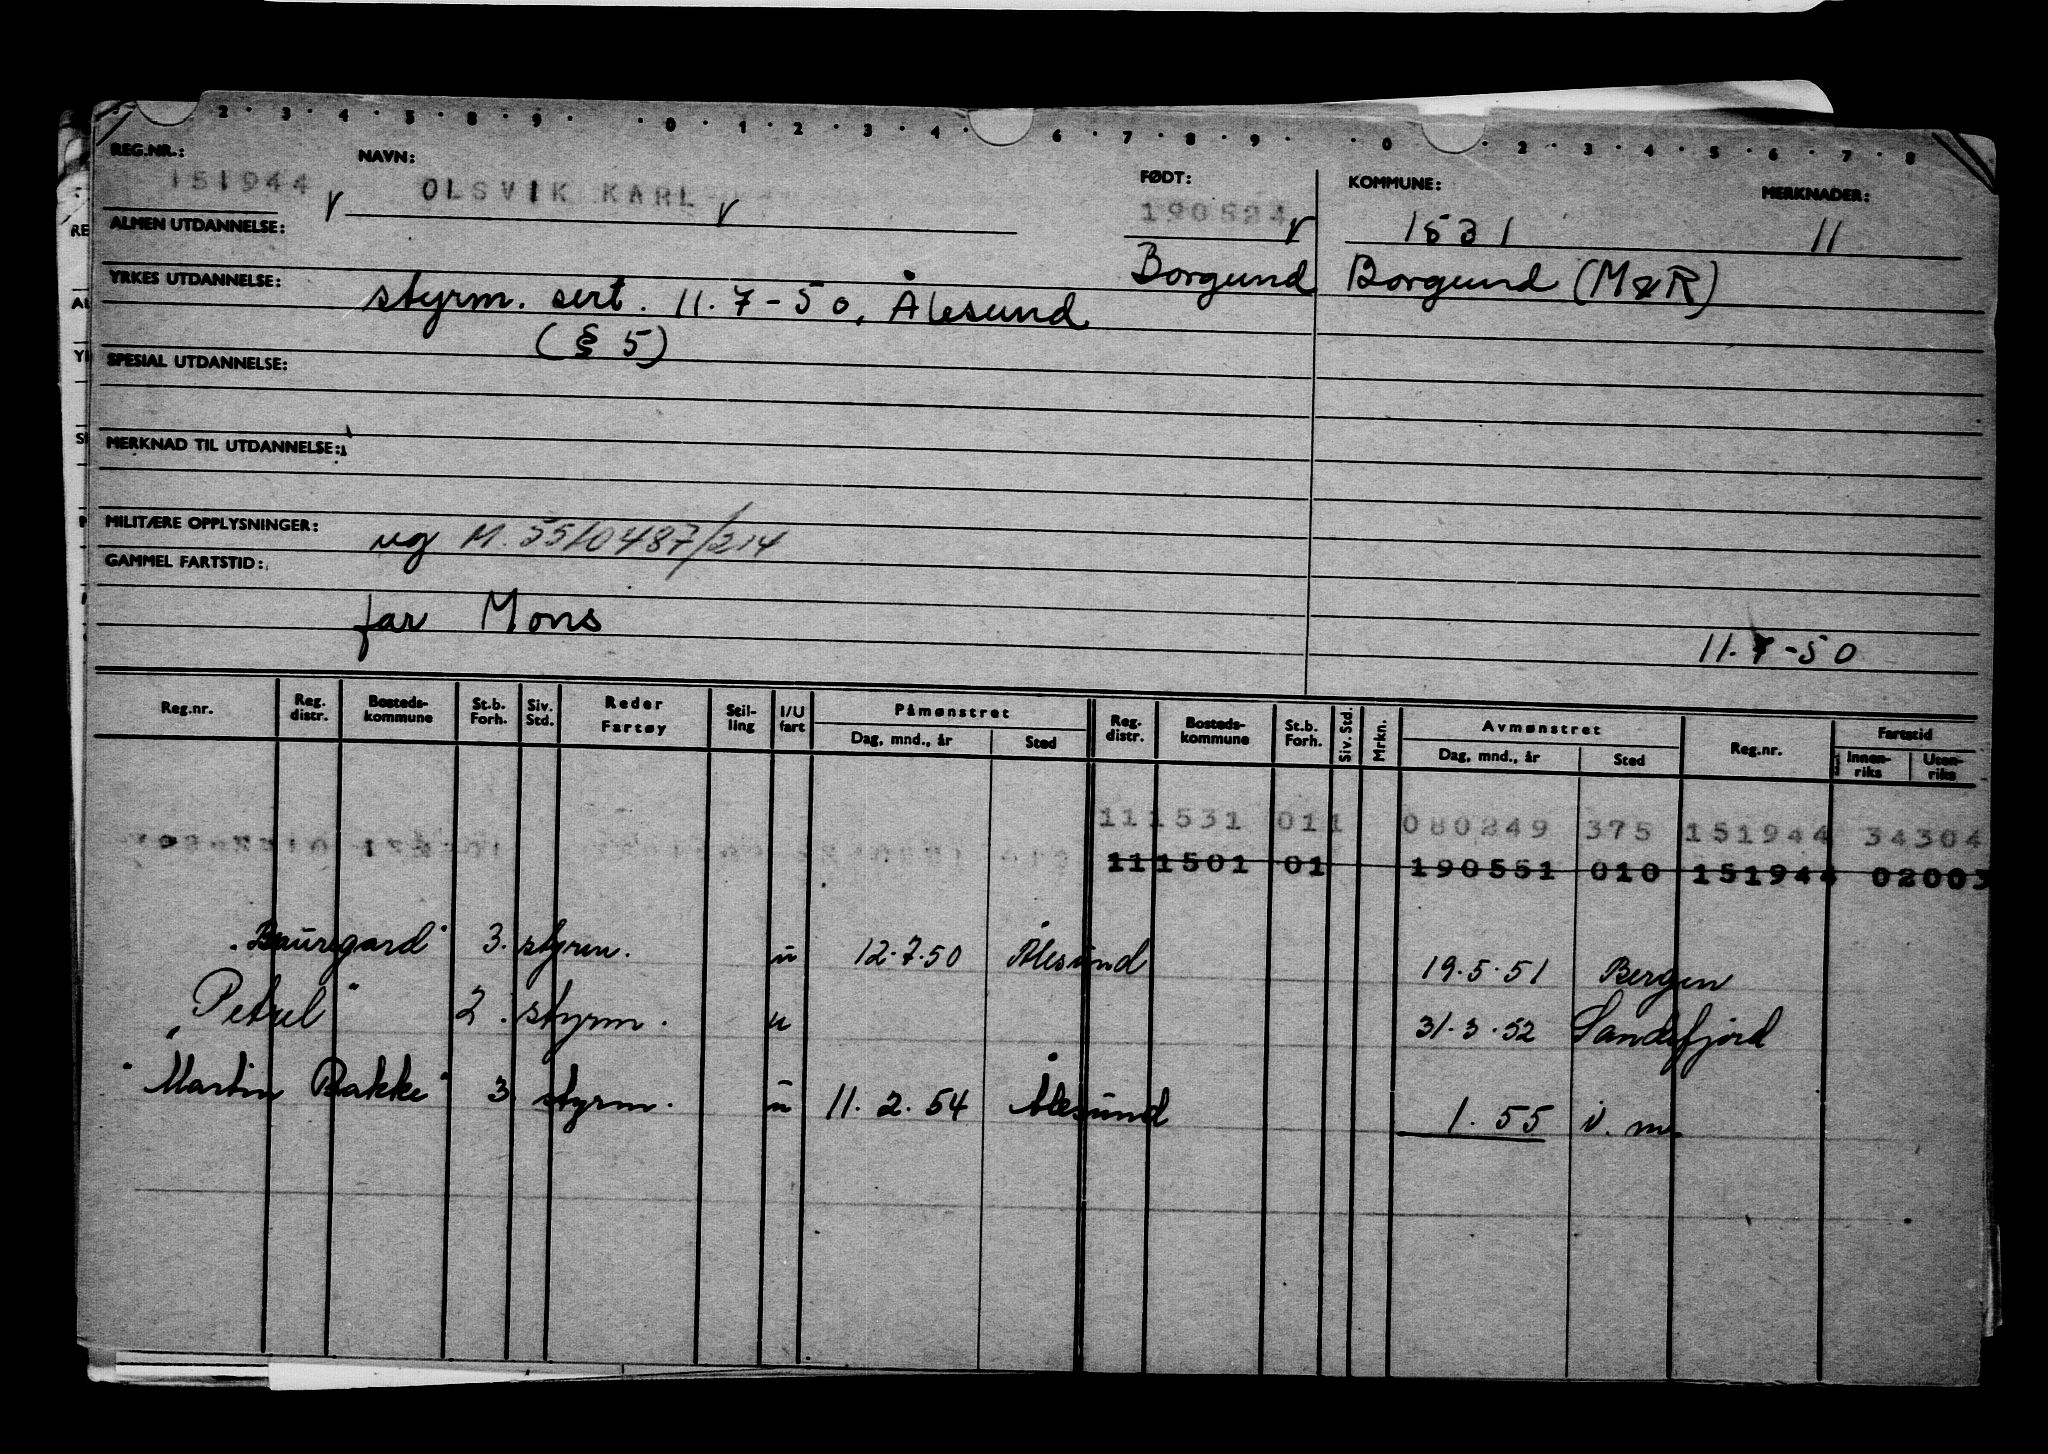 2 · 3 · 4 · 5 · 8 · 9 · · 0 · 1 · 2 · 3 · 4 · 6 · 7 · 8 · 9 · · 0 · 2 · 3 · 4 · 5 · 6 · 7 · 8
REG.NR.: NAVN: FØDT: KOMMUNE: MERKNADER:
151944 OLSVIK KARL 190524 1531 11
ALMEN UTDANNELSE: Borgund Borgund (M&R)
YRKES UTDANNELSE: styrm. sert. 11.7-50, Ålesund
(§ 5)
SPESIAL UTDANNELSE:
MERKNAD TIL UTDANNELSE:
MILITÆRE OPPLYSNINGER: ug M. 5510487/214
GAMMEL FARTSTID:
far Mons
11.7-50
Reg.nr. Reg. distr. Bosteds-kommune St.b. Forh. Siv. Std. Reder Fartøy Stil-ling I/U fart Påmønstret Dag, mnd., år Sted Reg. distr. Bosteds-kommune St.b. Forh. Siv. Std. Mrkn. Avmønstret Dag, mnd., år Sted Reg.nr. Fartstid Innen-riks Uten-riks
111531 011 080249 375 151944 34304
111501 01 190551 010 151944 02003
"Bauregard" 3. styrm. u 12.7.50 Ålesund 19.5.51 Bergen
"Petrel" 2. styrm. u 31.3.52 Sandefjord
"Martin Bakke" 3 styrm. u 11.2.54 Ålesund 1.55 i.m.